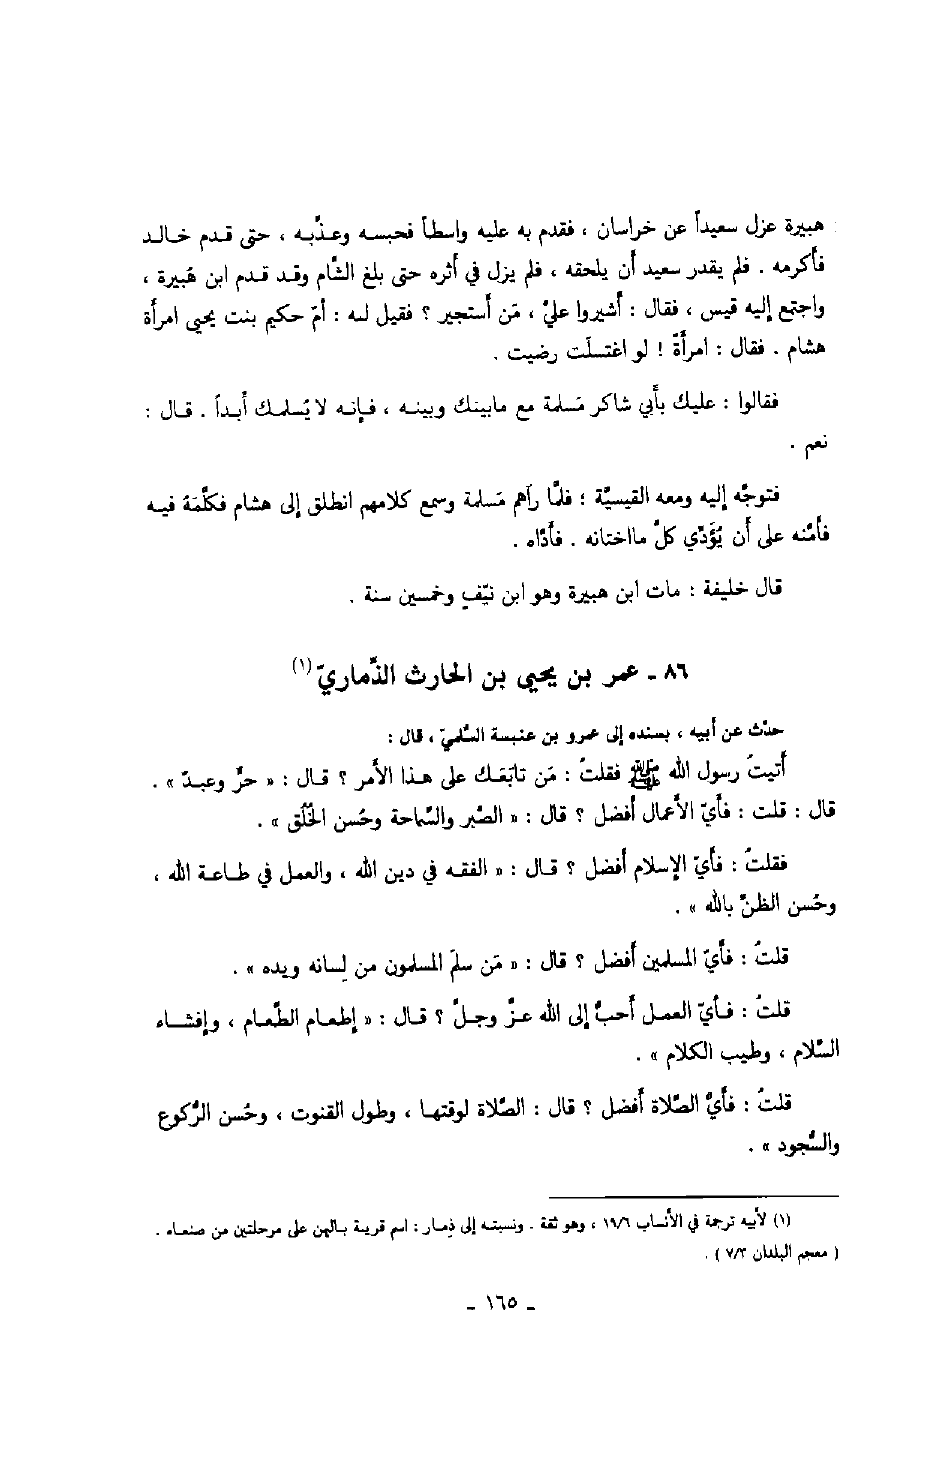 هبيرة عزل سعيداً عن خراسان ، فقدم به عليه واسطاً فحبسه وعذَّبه ، حتى قدم خالد
فأكرمه . فلم يقدر سعيد أن يلحقه ، فلم يزل في أثره حتى بلغ الشَّام وقد قدم ابن هُبيرة ،
واجتمع إليه قيس ، فقال : أشيروا عليَّ ، مَن أستجير ؟ فقيل له : أمّ حكيم بنت يحيى امرأة
هشام . فقال : امرأةٌ ! لو اغتسلَت رضيت .
فقالوا : عليك بأبي شاكر مَسلمة مع مابينك وبينه ، فإنه لا يُسلمك أبداً . قال :
نعم .
فتوجَّه إليه ومعه القيسيَّة ؛ فلمَّا رآهم مَسلمة وسمع كلامهم انطلق إلى هشام فكلَّمَهُ فيه
فأمَّنه على أن يُؤَدِّي كلَّ مااختانه . فأدَّاه .
قال خليفة : مات ابن هبيرة وهو ابن نيّفٍ وخمسين سنة .
٨٦ ـ عمر بن يحيى بن الحارث الذَّماريّ (١)
حدَّث عن أبيه ، بسنده إلى عمرو بن عنبسة السُّلميّ ، قال :
أتيتُ رسول الله ﷺ فقلتُ : مَن تابَعَك على هذا الأمر ؟ قال : « حرٌّ وعبدٌ » .
قال : قلت : فأيّ الأعمال أفضل ؟ قال : « الصَّبر والسَّماحة وحُسن الخُلُق » .
فقلتُ : فأيّ الإسلام أفضل ؟ قال : « الفقه في دين الله ، والعمل في طاعة الله ،
وحُسن الظنّ بالله » .
قلتُ : فأيّ المسلمين أفضل ؟ قال : « مَن سلمَ المسلمون من لِسانه ويده » .
قلتُ : فأيّ العمل أحبُّ إلى الله عزَّ وجلَّ ؟ قال : « إطعام الطَّعام ، وإفشاء
السَّلام ، وطيب الكلام » .
قلتُ : فأيُّ الصَّلاة أفضل ؟ قال : الصَّلاة لوقتها ، وطول القنوت ، وحُسن الرُّكوع
والسُّجود » .
(١) لأبيه ترجمة في الأنساب ١٩/٦ ، وهو ثقة . ونسبته إلى ذِمار : اسم قرية باليمن على مرحلتين من صنعاء .
( معجم البلدان ٧/٣ ) .
ـ ١٦٥ ـ